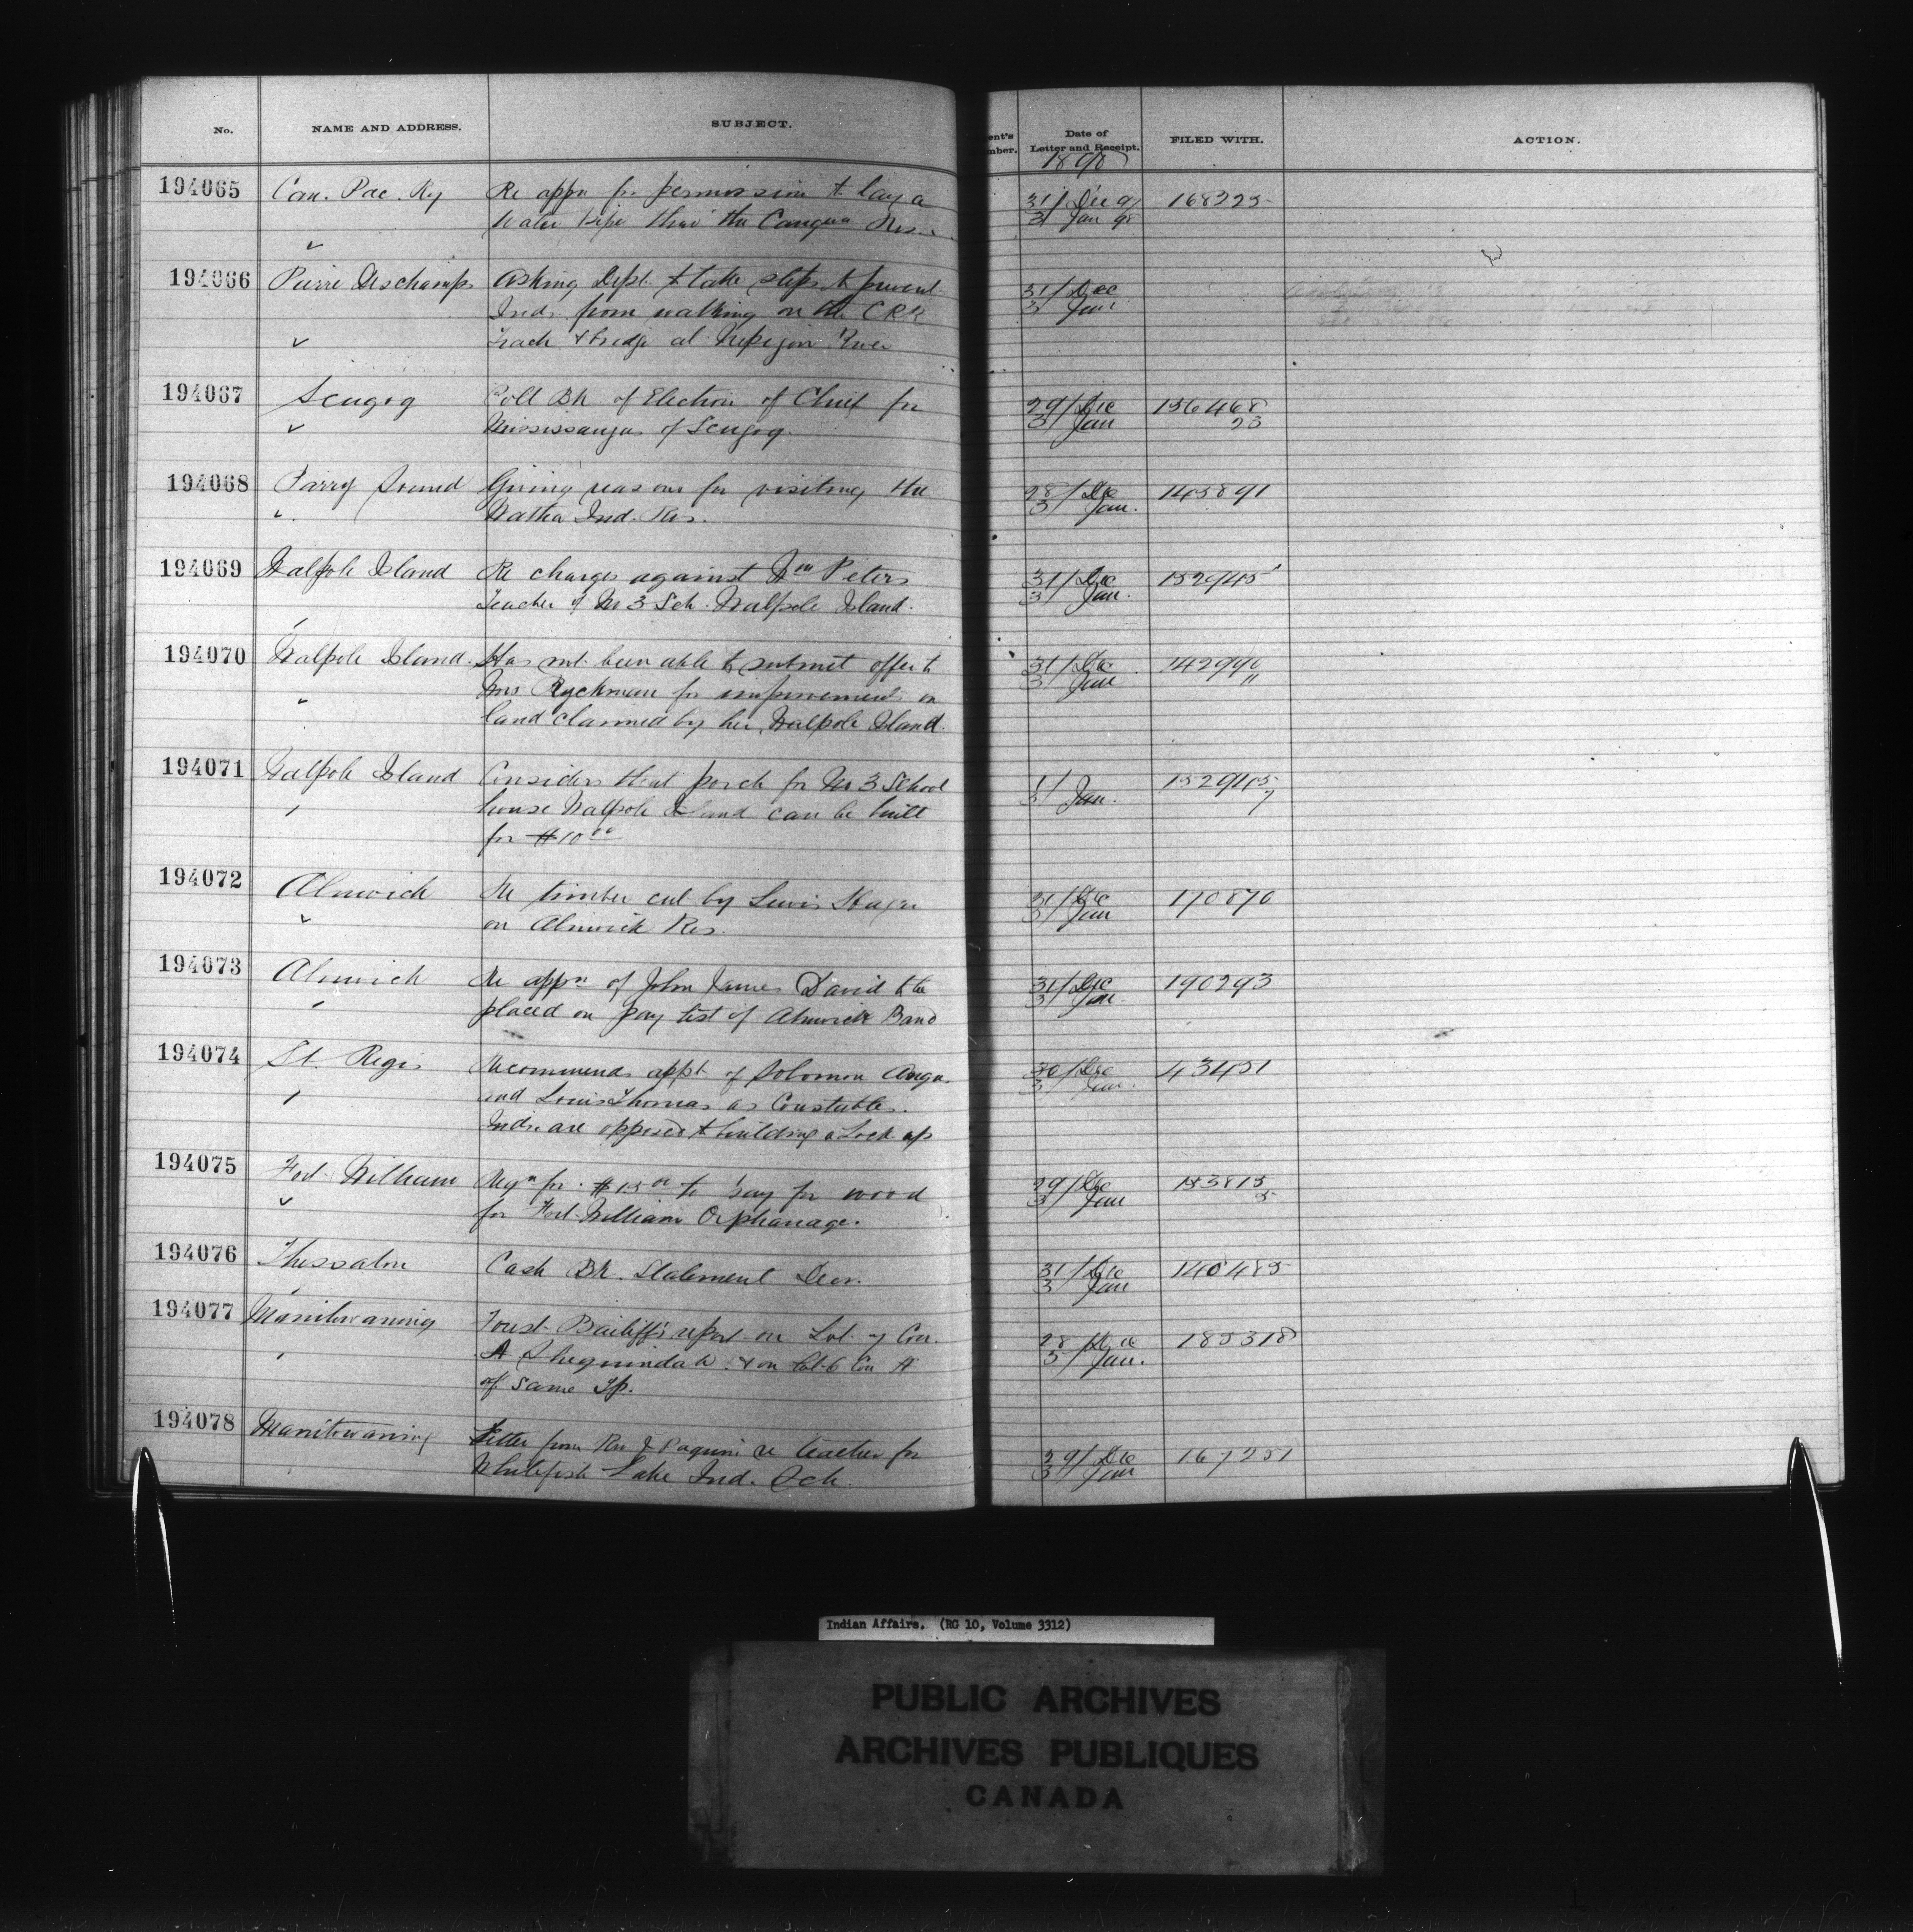 No. NAME AND ADDRESS. SUBJECT. ent's mber. Date of Letter and Receipt. FILED WITH. ACTION.
1898
194065 Can. Pac. Ry Re appn for permission to lay a 31/ Dec 97 168325
water pipe thro' the Res. 3/ Jan 98
194066 Pierre Deschamps Asking Dept. to take steps to prevent 31/ Dec
Inds. from walking on the C.P.R. 3/ Jan
track & bridge at Nepigon River
194067 Scugog Poll Bk of Election of Chief for 29/ Dec 156468
Mississaugas of Scugog. 3/ Jan 23
194068 Parry Sound Giving reasons for visiting the 28/ Dec 145891
Watha Ind. Res. 3/ Jan.
194069 Walpole Island Re charges against Wm Peters 31/ Dec 152945
Teacher of No 3 Sch. Walpole Island. 3/ Jan.
194070 Walpole Island. Has not been able to submit offer to 31/ Dec
Mrs Ryckman for improvements on 3/ Jan
land claimed by her, Walpole Island.
194071 Walpole Island Considers that porch for No 3 School 1/ 152945
house Walpole Island can be built 3/ Jan. 7
for $10.00
194072 Alnwick Re timber cut by Lewis Hager 31/ Dec 170870
on Alnwick Res. 3/ Jan
194073 Alnwick Re appn of John James David to be 31/ Dec 190293
placed on pay list of Alnwick Band 3/ Jan.
194074 St. Regis Recommends appt. of Solomon 30/ Dec 43451
and Louis Thomas as Constables. 3/ Jan.
Inds. are opposed to building a Lock up
194075 Fort William Reqn for $15.00 to pay for wood 29/ Dec 153815
for Fort William Orphanage. 3/ Jan 5
194076 Thessalon Cash Bk. Statement Decr. 31/ Dec 140485
3/ Jan
194077 Manitowaning Forest Bailiff's report on Lot 7 Con. 28/ Dec 185318
A Sheguindah & on Lot 6 Con A 3/ Jan.
of same Tp.
194078 Manitowaning Letter from Rev J Paquin re teacher for 29/ Dec 167251
Whitefish Lake Ind. Sch. 3/ Jan
Indian Affairs. (RG 10, Volume 3312)
PUBLIC ARCHIVES
ARCHIVES PUBLIQUES
CANADA